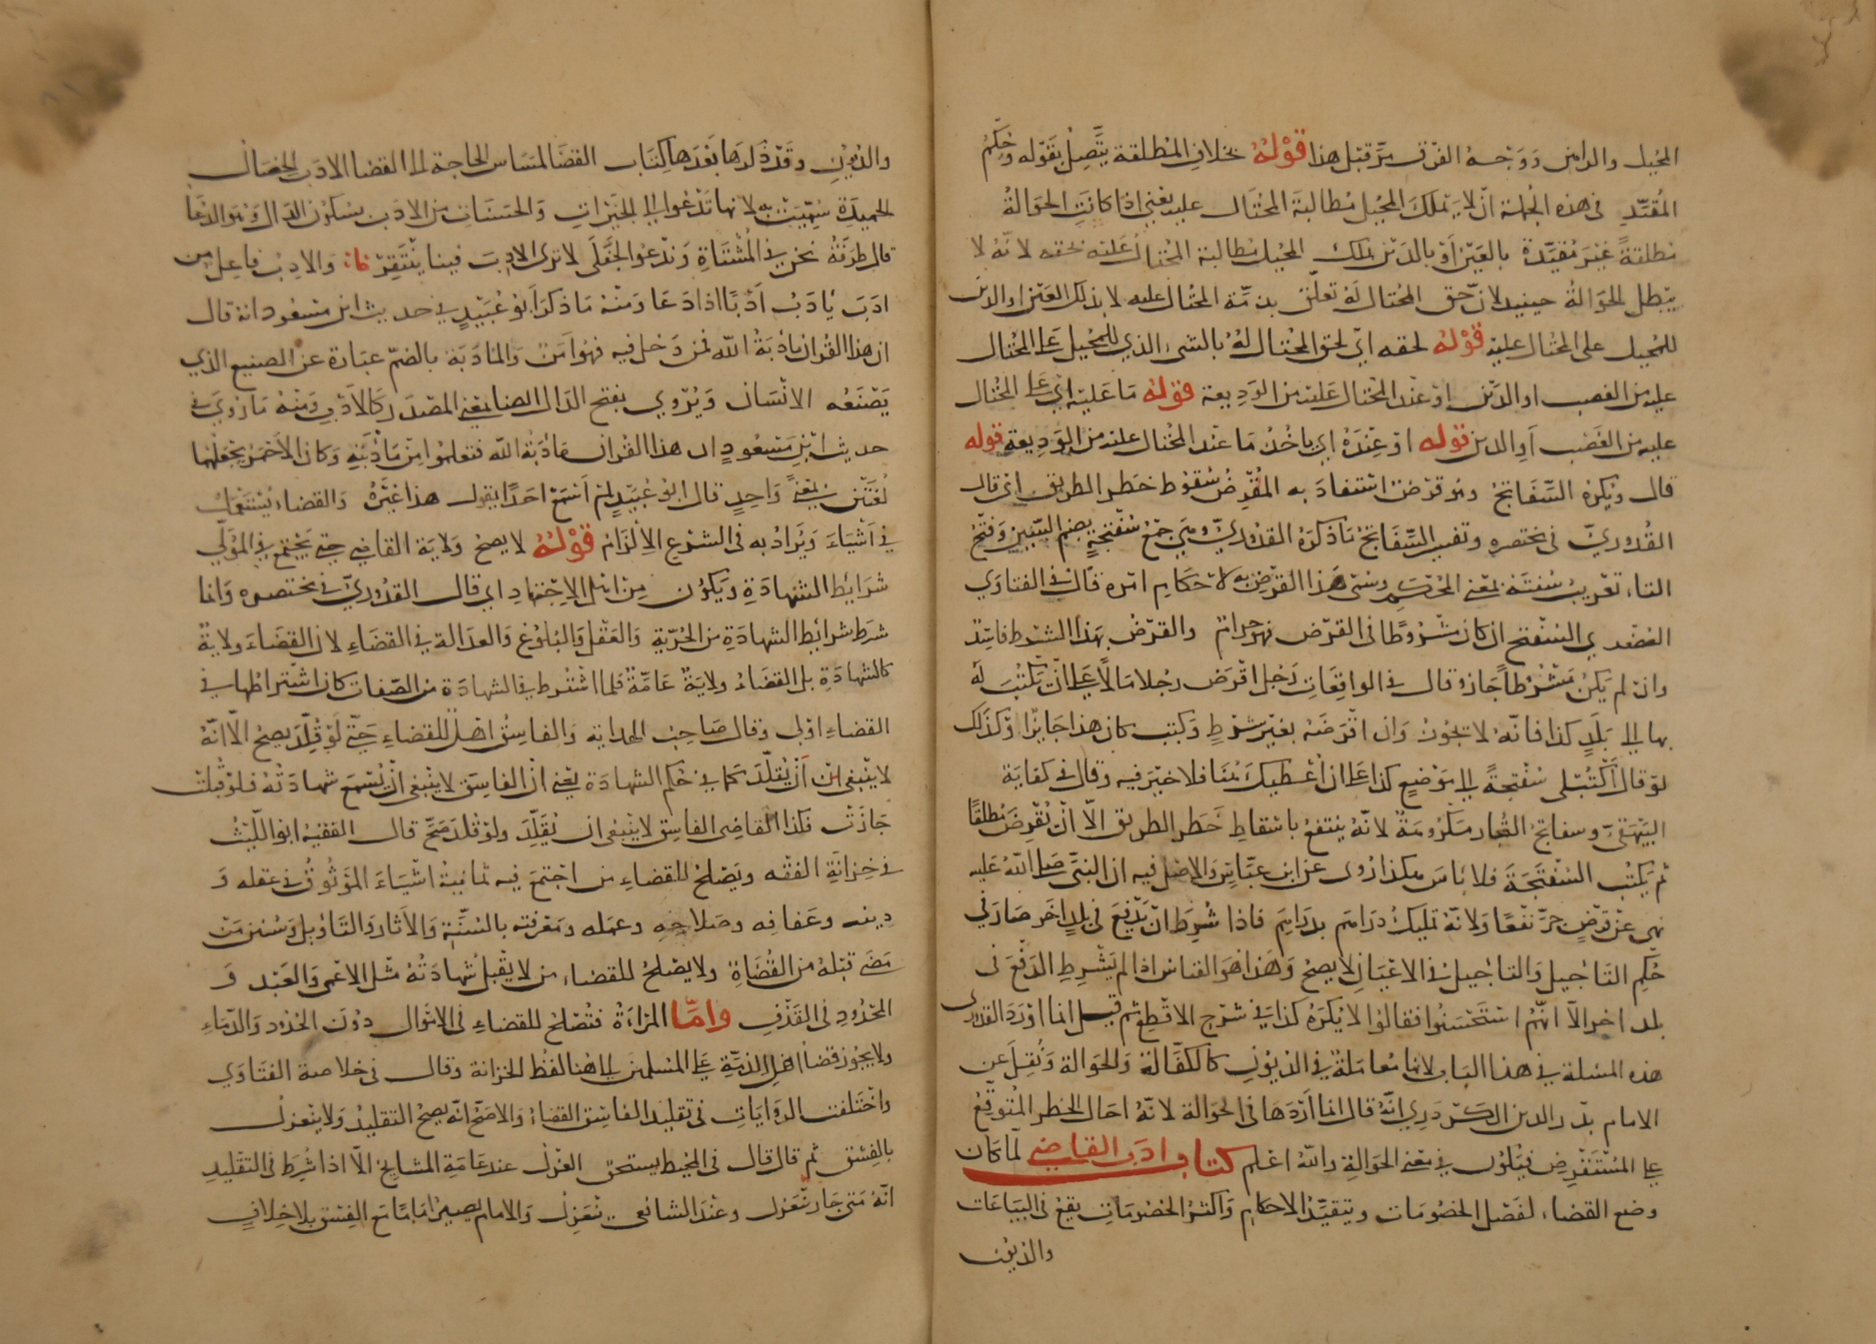 المحيل والراهن ووجه الفرق مر قبل هذا قوله بخلاف المطلقة يتصل بقوله وحكم
المقيد في هذه الجملة ان لا يملك المحيل مطالبة المحتال عليه يعني اذا كانت الحوالة
مطلقة غير مقيدة بالعين او بالدين يملك المحيل مطالبة المحتال عليه بحقه لانه لا
يبطل الحوالة حينئذ لان حق المحتال له تعلق بذمة المحتال عليه لا بذلك العين او الدين
للمحيل على المحتال عليه قوله لحقه اي لحق المحتال له بالشيء الذي للمحيل على المحتال
عليه من الغصب او الدين او عند المحتال عليه من الوديعة قوله ما عليه اي على المحتال
عليه من الغصب او الدين قوله او عنده اي ياخذ ما عند المحتال عليه من الوديعة قوله
قال ويكره السفاتج وهو قرض استفاد به المقرض سقوط خطر الطريق اي قال
القدوري في مختصره وتفسير السفاتج ما ذكره القدوري وهي جمع سفتجة بضم السين وفتح
التاء تعريب سفته بمعنى المحكم وسمي هذا القرض به لاحكام امره قال في الفتاوي
الصغرى السفتج ان كان مشروطا في القرض فهو حرام والقرض بهذا الشرط فاسد
وان لم يكن مشروطا جاز وقال في الواقعات رجل اقرض رجلا مالا على ان يكتب له
بها الى بلد كذا فانه لا يجوز وان اقرضه بغير شرط وكتب كان هذا جايزا وكذلك
لو قال اكتب لي سفتجة الى موضع كذا على ان اعطيك هنا فلا خير فيه وقال في كفاية
البيهقي وسفاتج التجار مكرومة لانه ينتفع باسقاط خطر الطريق الا ان يقرض مطلقا
ثم يكتب السفتجة فلا باس هكذا روى عن ابن عباس والاصل فيه ان النبي صلى الله عليه
نهى عن قرض جر نفعا ولانه تمليك دراهم بدراهم فاذا شرط ان يدفع في بلد اخر صار في
حكم التاجيل والتاجيل في الاعيان لا يصح وهذا هو القياس اذا لم يشرط الدفع في
بلد اخر الا انهم استحسنوا فقالوا لا يكره كذا في شرح الاقطع ثم قيل انما اورد القدوري
هذه المسلة في هذا الباب لانها معاملة في الديون كالكفالة والحوالة ونقل عن
الامام بدر الدين الكردري انه قال انما اوردها في الحوالة لانه احال الخطر المتوقع
على المستقرض فيكون في معنى الحوالة والله اعلم كتاب ادب القاضي لما كان
وضع القضاء لفصل الخصومات وتنفيذ الاحكام واكثر الخصومات يقع في البياعات
والديون
والديون وقد ذكرها بعدها كتاب القضا لمساس الحاجة الى القضا الادب الخصال
الحميدة سميت به لانها تدعوا الى الخيرات والحسنات من الادب بسكون الدال وهو الدعا
قال طرفة نحن في المشتاة ندعو الجفلى لا ترى الادب فينا ينتقر والادب فاعل من
ادب يادب ادبا اذا دعا ومنه ما ذكر ابو عبيد في حديث ابن مسعود انه قال
ان هذا القران مادبة الله فمن دخل فيه فهو امن والمادبة بالضم عبارة عن الصنيع الذي
يصنعه الانسان ويروي بفتح الدال ايضا بمعنى المصدر كالادب ومنه ما روي في
حديث ابن مسعود ان هذا القران مادبة الله فتعلموا من مادبته وكان الاحمر يجعلهما
لغتين بمعنى واحد قال ابو عبيد لم اسمع احدا يقول هذا غيره والقضاء يستعمل
في اشياء ويراد به في الشرع الالزام قوله لا يصح ولاية القاضي حتى يجتمع في المولى
شرايط الشهادة ويكون من اهل الاجتهاد اي قال القدوري في مختصره وانما
شرط شرايط الشهادة من الحرية والعقل والبلوغ والعدالة في القضاء لان القضاء ولاية
كالشهادة بل القضاء ولاية عامة فلما اشترط في الشهادة من الصفات كان اشتراطها في
القضاء اولى وقال صاحب الهداية والفاسق اهل للقضاء حتى لو قلد يصح الا انه
لا ينبغي ان يقلد كما في حكم الشهادة يعني ان الفاسق لا ينبغي ان يسمع شهادته فلو قبلت
جازت فكذا القاضي الفاسق لا ينبغي ان يقلد ولو قلد صح قال الفقيه ابو الليث
في خزانة الفقه ويصلح للقضاء من اجتمع فيه ثمانية اشياء الموثوق في عقله و
دينه وعفافه وصلاحه وعمله ومعرفته بالسنة والاثار والتاويل وسنن من
مضى قبله من القضاة ولا يصلح للقضاء من لا يقبل شهادته مثل الاعمى والعبد و
المحدود في القذف واما المراة فتصلح للقضاء في الاموال دون الحدود والدماء
ولا يجوز قضا اهل الذمة على المسلمين الى هنا لفظ الخزانة وقال في خلاصة الفتاوي
واختلفت الروايات في تقليد الفاسق القضاء والاصح انه يصح التقليد ولا ينعزل
بالفسق ثم قال قال في المحيط يستحق العزل عند عامة المشايخ الا اذا شرط في التقليد
انه متى جار ينعزل وعند الشافعي ينعزل والامام يصير اماما مع الفسق بلا خلاف